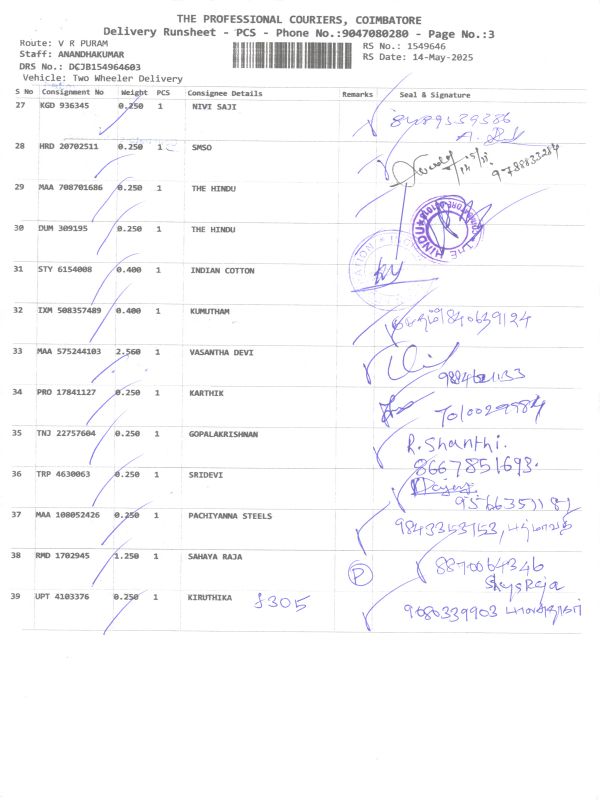 THE PROFESSIONAL COURIERS, COIMBATORE
Delivery Runsheet - PCS - Phone No.:9047080280 - Page No.:3
Route: V R PURAM RS No.: 1549646
Staff: ANANDHAKUMAR RS Date: 14-May-2025
DRS No.: DCJB154964603
Vehicle: Two Wheeler Delivery
S No Consignment No Weight PCS Consignee Details Remarks Seal & Signature
27 KGD 936345 0.250 1 NIVI SAJI 8489539386
28 HRD 20702511 0.250 1 SMSO 9788833284
29 MAA 708701686 0.250 1 THE HINDU
30 DUM 309195 0.250 1 THE HINDU
THE HINDU
31 STY 6154008 0.400 1 INDIAN COTTON
32 IXM 508357489 0.400 1 KUMUTHAM 9840639124
33 MAA 575244103 2.560 1 VASANTHA DEVI
34 PRO 17841127 0.250 1 KARTHIK 7010029984
35 TNJ 22757604 0.250 1 GOPALAKRISHNAN R. Shanthi.
8667851693.
36 TRP 4630063 0.250 1 SRIDEVI
37 MAA 108052426 0.250 1 PACHIYANNA STEELS 9843353153,
38 RMD 1702945 1.250 1 SAHAYA RAJA P 8870064346
39 UPT 4103376 0.250 1 KIRUTHIKA 9080339903